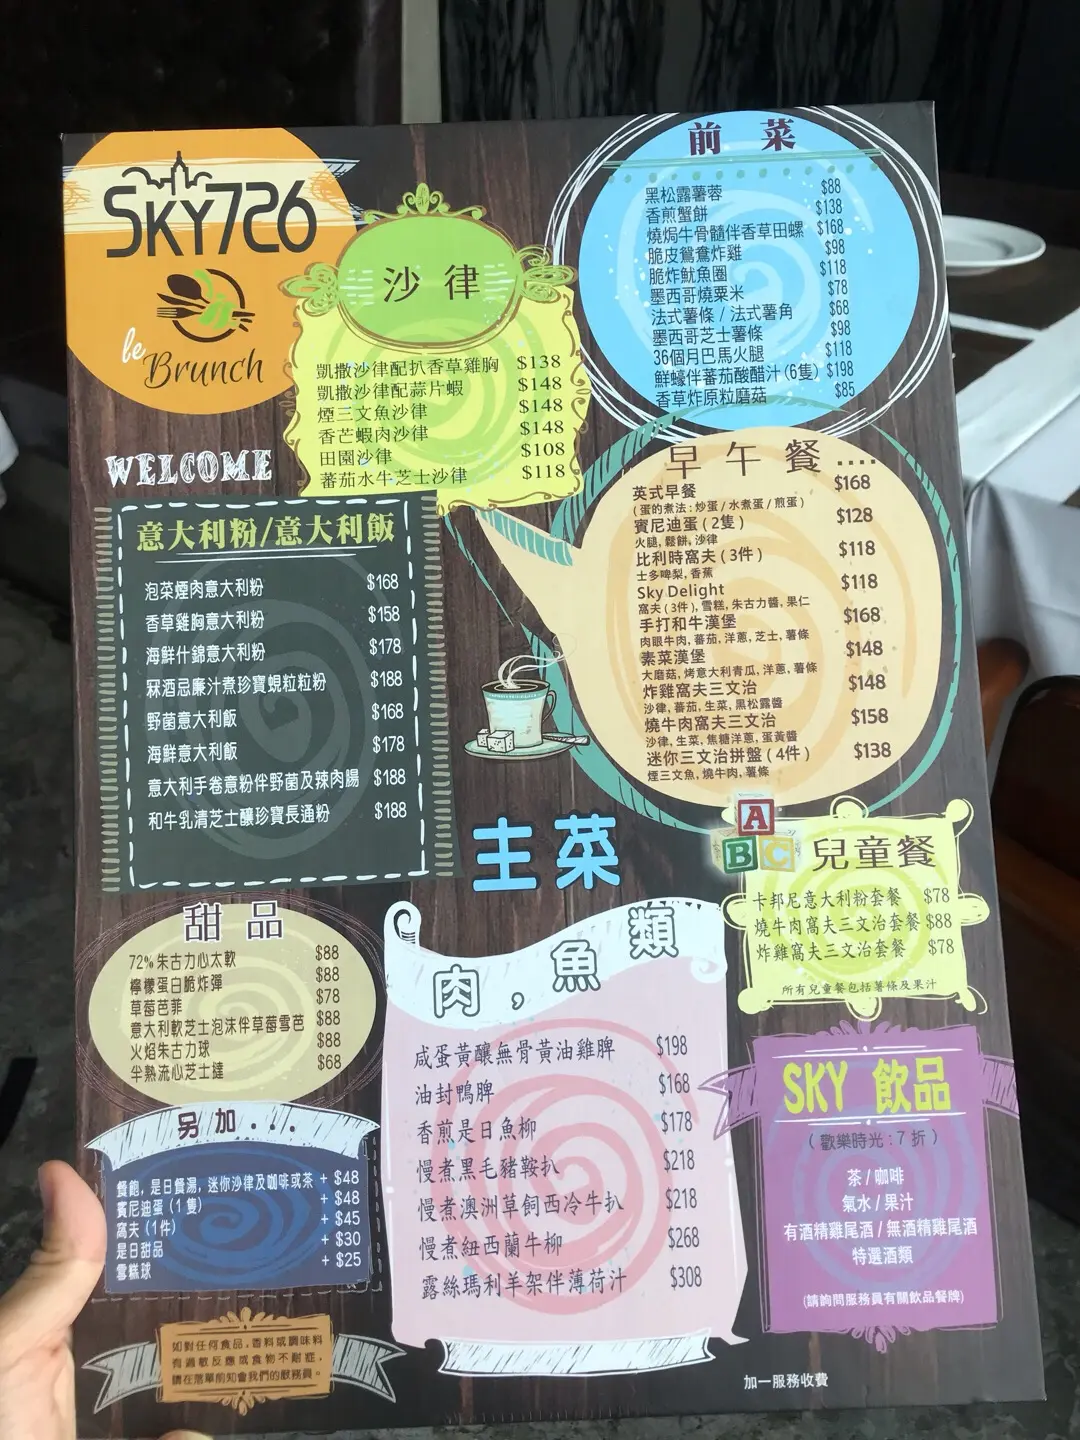 SKY726
le
Brunch
WELCOME
沙律
凱撒沙律配扒香草雞胸 $138
凱撒沙律配蒜片蝦 $148
煙三文魚沙律 $148
香芒蝦肉沙律 $148
田園沙律 $108
蕃茄水牛芝士沙律 $118
前菜
黑松露薯蓉 $88
香煎蟹餅 $138
燒焗牛骨髓伴香草田螺 $168
脆皮鴛鴦炸雞 $98
脆炸魷魚圈 $118
墨西哥燒粟米 $78
法式薯條 / 法式薯角 $68
墨西哥芝士薯條 $98
36個月巴馬火腿 $118
鮮蠔伴蕃茄酸醋汁 (6隻) $198
香草炸原粒磨菇 $85
早午餐....
英式早餐 $168
(蛋的煮法 : 炒蛋 / 水煮蛋 / 煎蛋)
賓尼迪蛋 ( 2隻 ) $128
火腿, 鬆餅, 沙律
比利時窩夫 ( 3件 ) $118
士多啤梨, 香蕉
Sky Delight $118
窩夫 ( 3件 ), 雪糕, 朱古力醬, 果仁
手打和牛漢堡 $168
肉眼牛肉, 蕃茄, 洋蔥, 芝士, 薯條
素菜漢堡 $148
大磨菇, 烤意大利青瓜, 洋蔥, 薯條
炸雞窩夫三文治 $148
沙律, 蕃茄, 生菜, 黑松露醬
燒牛肉窩夫三文治 $158
沙律, 生菜, 焦糖洋蔥, 蛋黃醬
迷你三文治拼盤 ( 4件 ) $138
煙三文魚, 燒牛肉, 薯條
意大利粉/意大利飯
泡菜煙肉意大利粉 $168
香草雞胸意大利粉 $158
海鮮什錦意大利粉 $178
槑酒忌廉汁煮珍寶蜆粒粒粉 $188
野菌意大利飯 $168
海鮮意大利飯 $178
意大利手卷意粉伴野菌及辣肉腸 $188
和牛乳清芝士釀珍寶長通粉 $188
主菜
肉，魚類
咸蛋黃釀無骨黃油雞脾 $198
油封鴨脾 $168
香煎是日魚柳 $178
慢煮黑毛豬鞍扒 $218
慢煮澳洲草飼西冷牛扒 $218
慢煮紐西蘭牛柳 $268
露絲瑪利羊架伴薄荷汁 $308
A
B
C
兒童餐
卡邦尼意大利粉套餐 $78
燒牛肉窩夫三文治套餐 $88
炸雞窩夫三文治套餐 $78
所有兒童餐包括薯條及果汁
甜品
72% 朱古力心太軟 $88
檸檬蛋白脆炸彈 $88
草莓芭菲 $78
意大利軟芝士泡沫伴草莓雪芭 $88
火焰朱古力球 $88
半熟流心芝士撻 $68
另加...
餐飽, 是日餐湯, 迷你沙律及咖啡或茶 + $48
賓尼迪蛋 (1隻) + $48
窩夫 (1件) + $45
是日甜品 + $30
雪糕球 + $25
SKY 飲品
( 歡樂時光 : 7 折 )
茶 / 咖啡
氣水 / 果汁
有酒精雞尾酒 / 無酒精雞尾酒
特選酒類
(請詢問服務員有關飲品餐牌)
如對任何食品，香料或調味料
有過敏反應或食物不耐症，
請在落單前知會我們的服務員。
加一服務收費